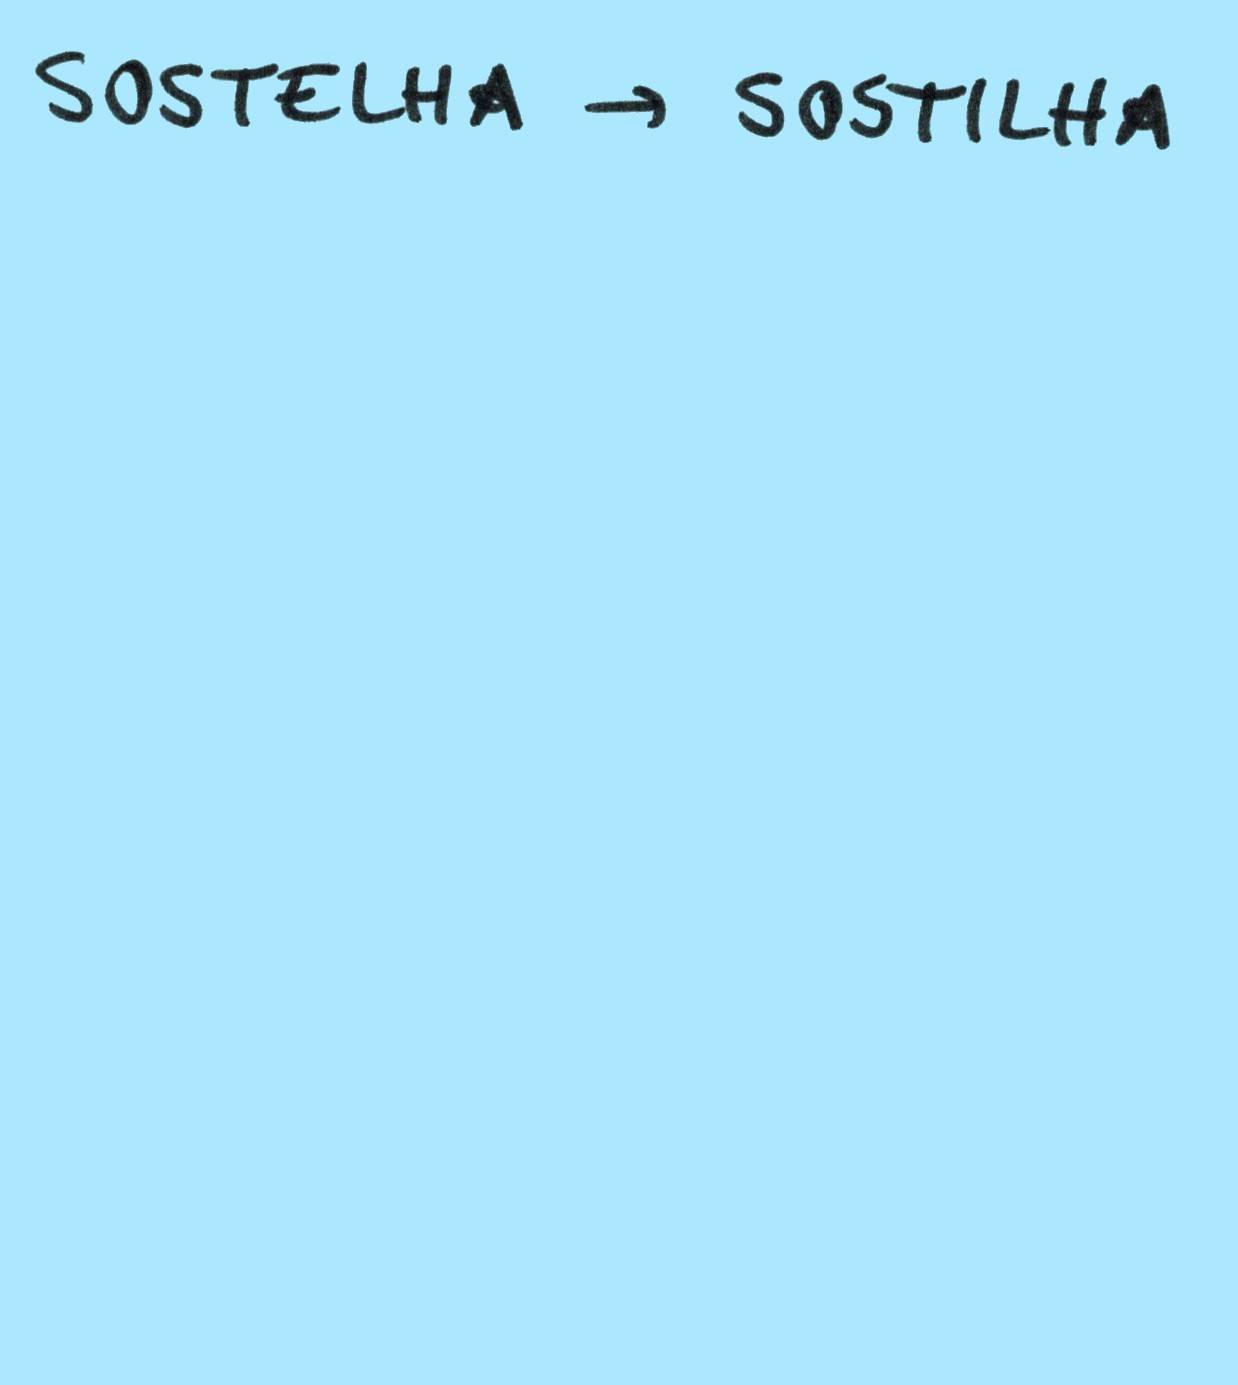 SOSTELHA → SOSTILHA